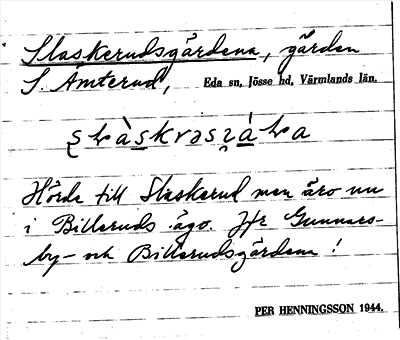 Slaskerudsgärdena, gärden
S. Ämterud, Eda sn, Jösse hd, Värmlands län.
Hörde till Slaskerud men äro nu
i Billeruds ägo. Jfr Gunnars-
by- och Billerudsgärdena!
PER HENNINGSSON 1944.